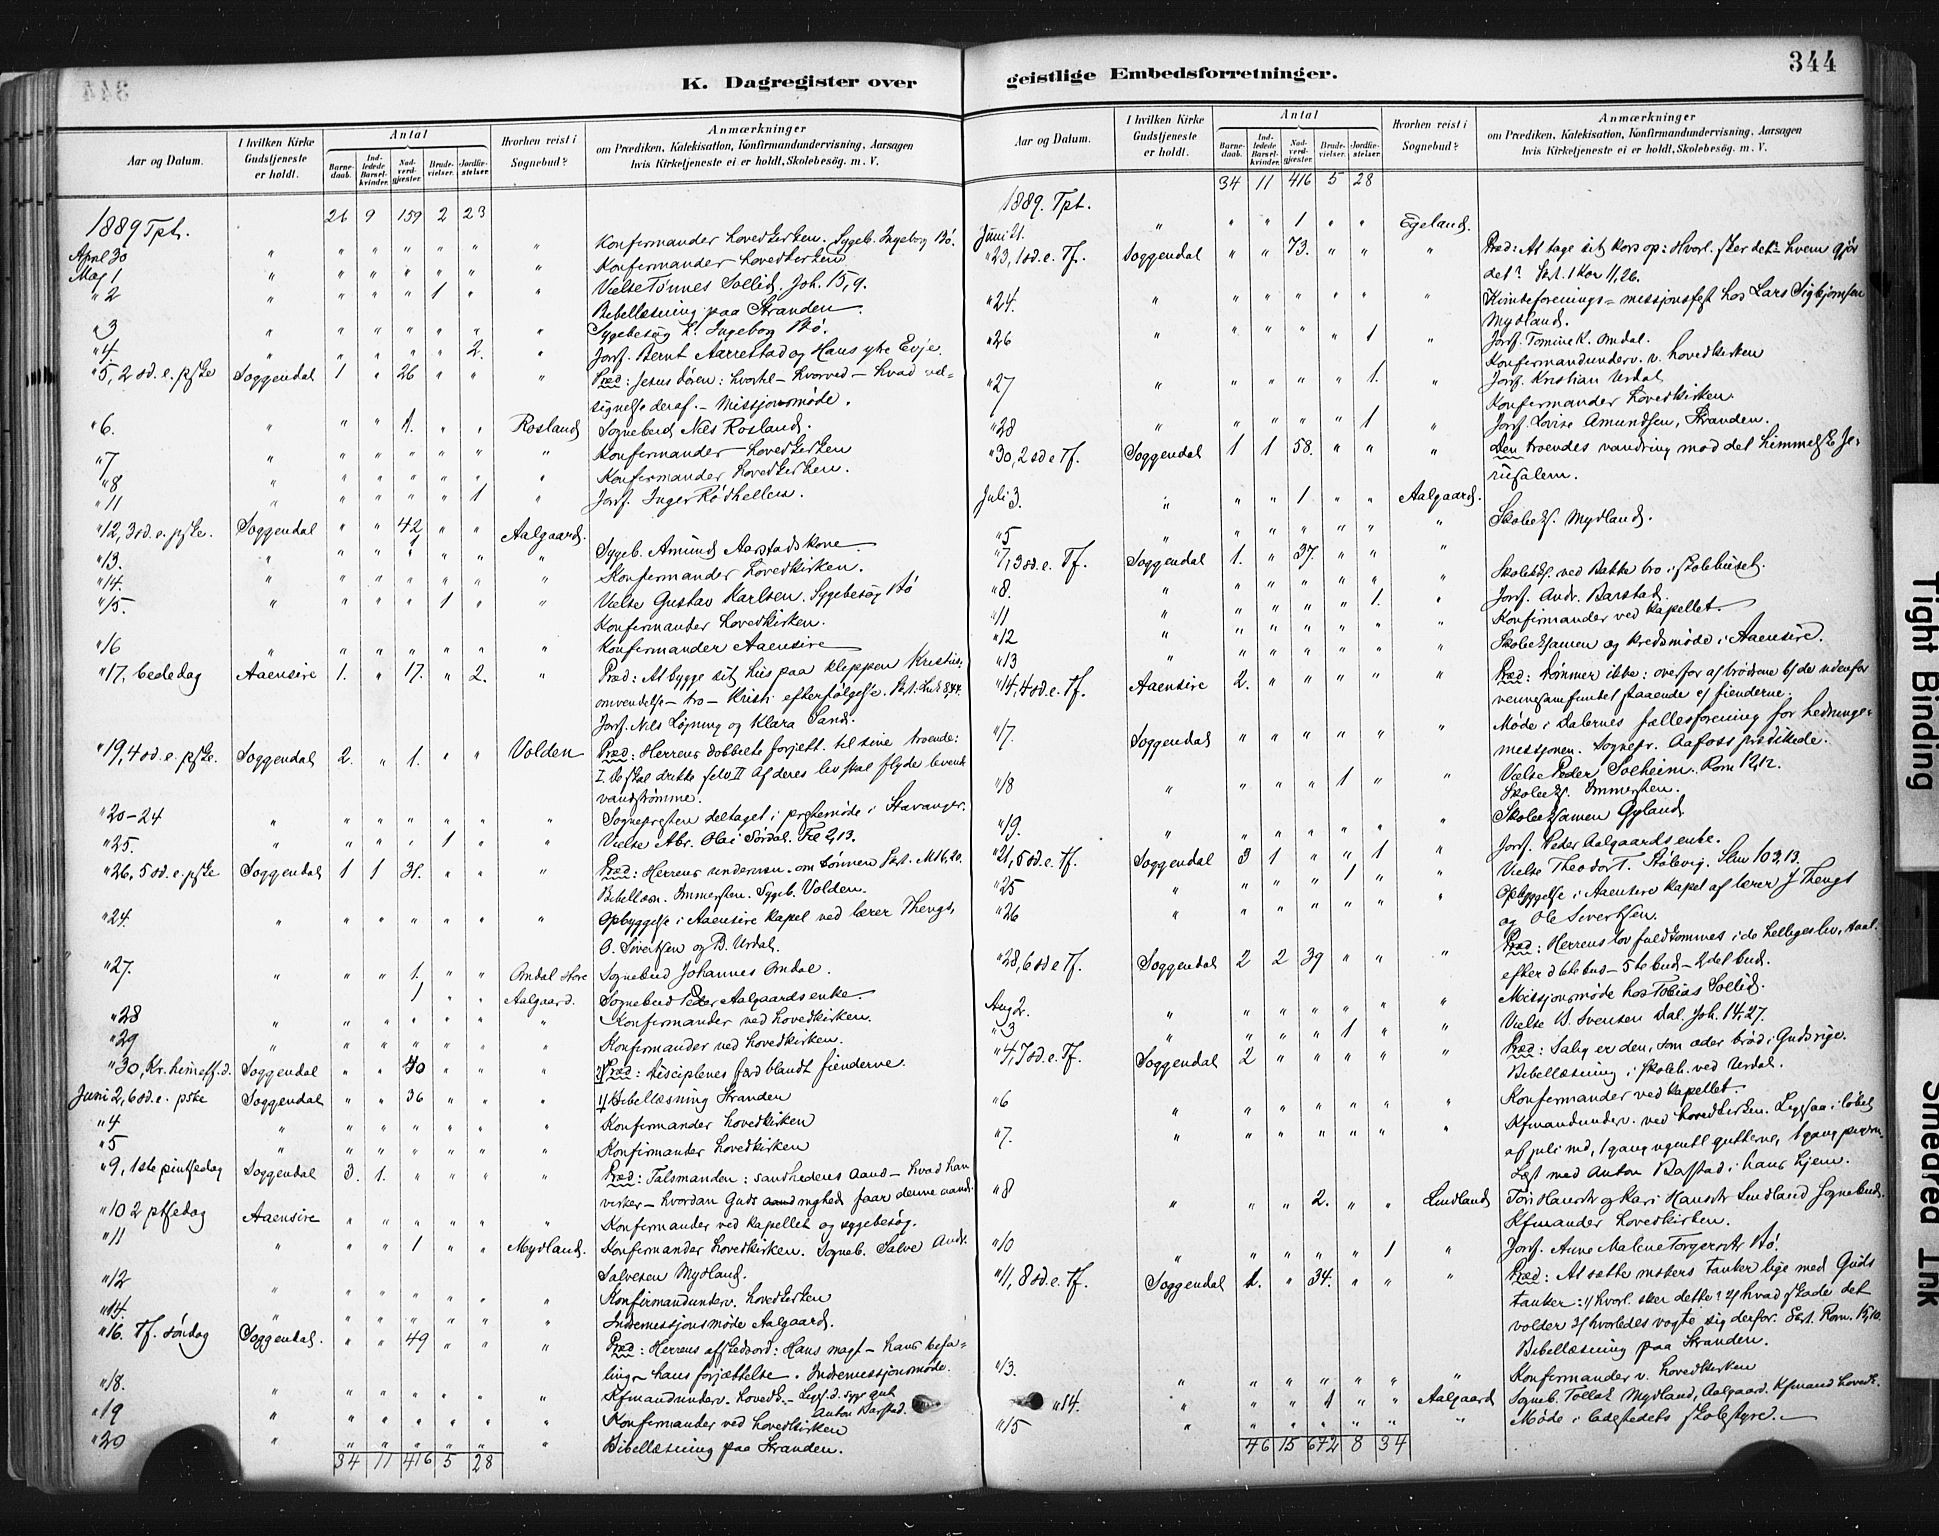 344
K. Dagregister over
Aar og Datum.
I hvilken Kirke Gudstjeneste er holdt.
Antal
Barnedaab.
Indledede Barselkvinder.
Nadverdgjester.
Brudevielser.
Jordfæstelser.
Hvorhen reist i Sognebud?
Anmærkninger
om Prædiken, Katekisation, Konfirmandundervisning, Aarsagen
hvis Kirketjeneste ei er holdt, Skolebesøg m. V.
1889 Tpt. 26 9 159 2 23
April 30 " " " " " " " Konfirmander hovedkirken. Sygeb. Ingeborg Bø.
Maj 1 " " " " " " " Konfirmander hovedkirken
" 2 " " " " 1 " " Vielse Tønnes Sollid. Joh. 15,9.
Bibellæsning paa Stranden
" 3 " " " " " " " Sygebesøg h. Ingeborg Bø.
" 4 " " " " " 2. " Jordf. Bernt Aarrestad og Hans ytre Evje.
" 5, 2 sd. e. pske Soggendal 1 " 26 " " " Præd: Jesus døren: hvortil – hvorved – hvad vel-
signelse deraf. – Missjonsmøde.
" 6. " " " 1. " " Rosland Sognebud Nils Rosland.
" 7 " " " " " " " Konfirmander hovedkirken
" 8 " " " " " " " Konfirmander hovedkirken.
" 11 " " " " " 1 " Jordf. Inger Rødhelleren.
" 12, 3 sd. e. pske. Soggendal " " 42 " " Aalgaard.
" 13. " " " 1 " " " Sygeb. Amund Aarstads kone
" 14. " " " " " " " Konfirmander hovedkirken.
" 15. " " " " 1 " " Vielse Gustav Karlsen. Sygebesøg Bø
Konfirmander hovedkirken.
" 16 " " " " " " " Konfirmander Aaensire
" 17. bededag Aaensire 1. " 17. " 2. " Præd: At bygge sit hus paa kleppen Kristus:
omvendelse – tro – Kristi efterfølgelse.
Jordf. Nils Løjning og Klara Sand.
" 19, 4 sd. e. pske. Soggendal 2. " 1. " " Volden Præd: Herrens dobbelte forjætt. til sine troende:
I. De skal drikke selv II Af deres liv skal flyde levende
vandstrømme.
" 20–24 " " " " " " " Sognepresten deltaget i prstemøde i Stavanger.
" 25. " " " " 1 " " Vielse Abr. Olai Sørdal. Fil 2,13.
" 26, 5 sd. e. pske Soggendal 1 1 31. " " " Præd: Herrens undervisn. om bønnen
Bibellæsn. Immersten. Sygeb. Volden.
" 24. " " " " " " " Opbyggelse i Aaensire kapel ved lærer Thengs,
O. Sivertsen og B. Urdal.
" 27. " " " 1. " " Omdal store Sognebud Johannes Omdal.
1 " " Aalgaard. Sognebud Peder Aalgaards enke.
" 28 " " " " " " " Konfirmander ved hovedkirken.
" 29 " " " " " " " Konfirmander ved hovedkirken.
" 30, Kr. himmelf. d. Soggendal " " 40 " " " Præd: Disciplenes færd blandt fienderne.
Juni 2, 6 sd. e. pske Soggendal " " 36 " " " Bibellæsning Stranden
" 4 " " " " " " " Konfirmander hovedkirken
" 5 " " " " " " " Konfirmander hovedkirken
" 9, 1ste pintsedag Soggendal 3. 1. " " " " Præd: Talsmanden: sandhedens aand – hvad han
virker – hvordan Guds menighed faar denne aand.
" 10 2 ptsedag Aaensire " " " " " " Konfirmander ved kapellet og sygebesøg.
" 11 " " " 1 " " Mydland. Konfirmander hovedkirken. Sogneb. Salve Andr.
Salvesen Mydland.
" 12 " " " " " " Konfirmandunderv. hovedkirken
" 14. " " " " " " Indremissjonsmøde Aalgaard.
" 16. Tf. søndag Soggendal. " " 49 " " " Præd: Herrens afskedsord: Hans magt – hans befa-
ling – hans forjættelse. Indremissjonsmøde.
" 18. " " " " " " " Kfmandunderv. hovedk.
Anton Barstad.
" 19 " " " " " " " Konfirmander ved hovedkirken
" 20 " " " " " " " Bibellæsning paa Stranden.
34 11 416 5 28
geistlige Embedsforretninger.
344
Aar og Datum.
I hvilken Kirke Gudstjeneste er holdt.
Antal
Barnedaab.
Indledede Barselkvinder.
Nadverdgjester.
Brudevielser.
Jordfæstelser.
Hvorhen reist i Sognebud?
Anmærkninger
om Prædiken, Katekisation, Konfirmandundervisning, Aarsagen
hvis Kirketjeneste ei er holdt, Skolebesøg m. V.
1889. Tpt. 34 11 416 5 28
Juni 21. " " " 1 " " Egeland.
" 23, 1 sd. e. Tf. Soggendal " " 73. " " " Præd: At tage sit kors op: Hvorl. sker det – hvem gjør
det? Skt. 1 Kor 11,26.
" 24. " " " " " " " Kvindeforenings-missjonsfest hos Lars Sigbjørnsen
Mydland.
" 26 " " " " " 1 " Jordf. Tomine K. Omdal.
Konfirmandunderv. v. hovedkirken
" 27 " " " " " 1. " Jordf. Kristian Urdal
Konfirmander hovedkirken.
" 28 " " " " 1 " Jordf. Lovise Amundsen, Stranden.
" 30, 2 sd e Tf. Soggendal 1 1 58. " " " Den troendes vandring mod det himmelske Je-
rusalem.
Juli 3. " " " 1 " " Aalgaard.
" 5 " " " " " " " Skoleex. Mydland.
" 7, 3 sd. e. Tf. Soggendal 1. " 37. " " "
" 8. " " " " " " " Skoleex. ved Bakke bro i skolehuset.
" 11 " " " " " 1. " Jordf. Andr. Barstad.
Konfirmander ved kapellet
" 12 " " " " " " " Skoleexamen og kredsmøde i Aaensire.
" 13 " " " " " "
" 14, 4 sd. e. Tf. Aaensire 2. " " " " " Præd: Dømmer ikke: overfor a/ brødrene b/ de udenfor
vennesamfundet staaende c/ fienderne.
" 17. Soggendal " " " " " " Møde i Dalernes fællesforening for hedninge-
missjonen. Sognepr. Aafoss prædikede.
" 18 " " " " 1 " " Vielse Peder Solheim. Rom 12,12.
Skoleex. Immersten.
" 19. " " " " " " Skoleexamen Gyland
" 21, 5 sd. e. Tf. Soggendal 3 1 " " 1 " Jordf. Peder Aalgaards enke.
" 25 " " " " 1 " " Vielse Theodor T. Stølevig. Slm 103,13.
" 26 " " " " " " " Opbyggelse i Aaensire kapel af lærer J Thengs
og Ole Sivertsen.
" 28, 6 sd e Tf. Soggendal 2 2 39 " " " Præd: Herrens lov fuldkommes i de helliges liv,
efter d 6te bud – 5te bud – 2det bud.
Aug 2. " " " " " " " Missjonsmøde hos Tobias Sollid.
" 3 " " " " 1 " " Vielse B. Svensen Dal. Joh. 14,27.
" 4, 7 sd. e. Tf. Soggendal 2 " " " " " Præd: Salig er den, som æder brød i Guds rige.
Bibellæsning i skoleh. ved Urdal.
" 6 " " " " " " " Konfirmander ved kapellet.
" 7. " " " " " " " Kfmandunderv. ved hovedkirken. Ligesaa i løbet
af juli md, 1 gang ugentl gutterne, 1 gang pigern.
Læst med Anton Barstad i hans hjem.
" 8 " " " 2. " " Lindland Tori Hansdtr og Kari Hansdtr Lindland Sognebud.
Kfmander hovedkirken.
" 10 " " " " " 1 " Jordf. Anne Malene Torgersdtr Bø.
" 11, 8 sd. e. Tf. Soggendal 1. " 34. " " " Præd: At sætte mskers tanker lige med Guds
tanker: 1/ hvorl. sker dette? 2/ hvad skade det
volder 3/ hvorledes vogte sig derfor.
Bibellæsning paa Stranden.
" 13. " " " " " " " Konfirmander v. hovedkirken
" 14. " " " 1 " " Aalgaard Sogneb. Tollak Mydland, Aalgaard. Kfmand hovedk.
" 15 " " " " " " " Møde i ladestedets skolestyre.
46 15 672 8 34
Tight Binding
Smeared Ink